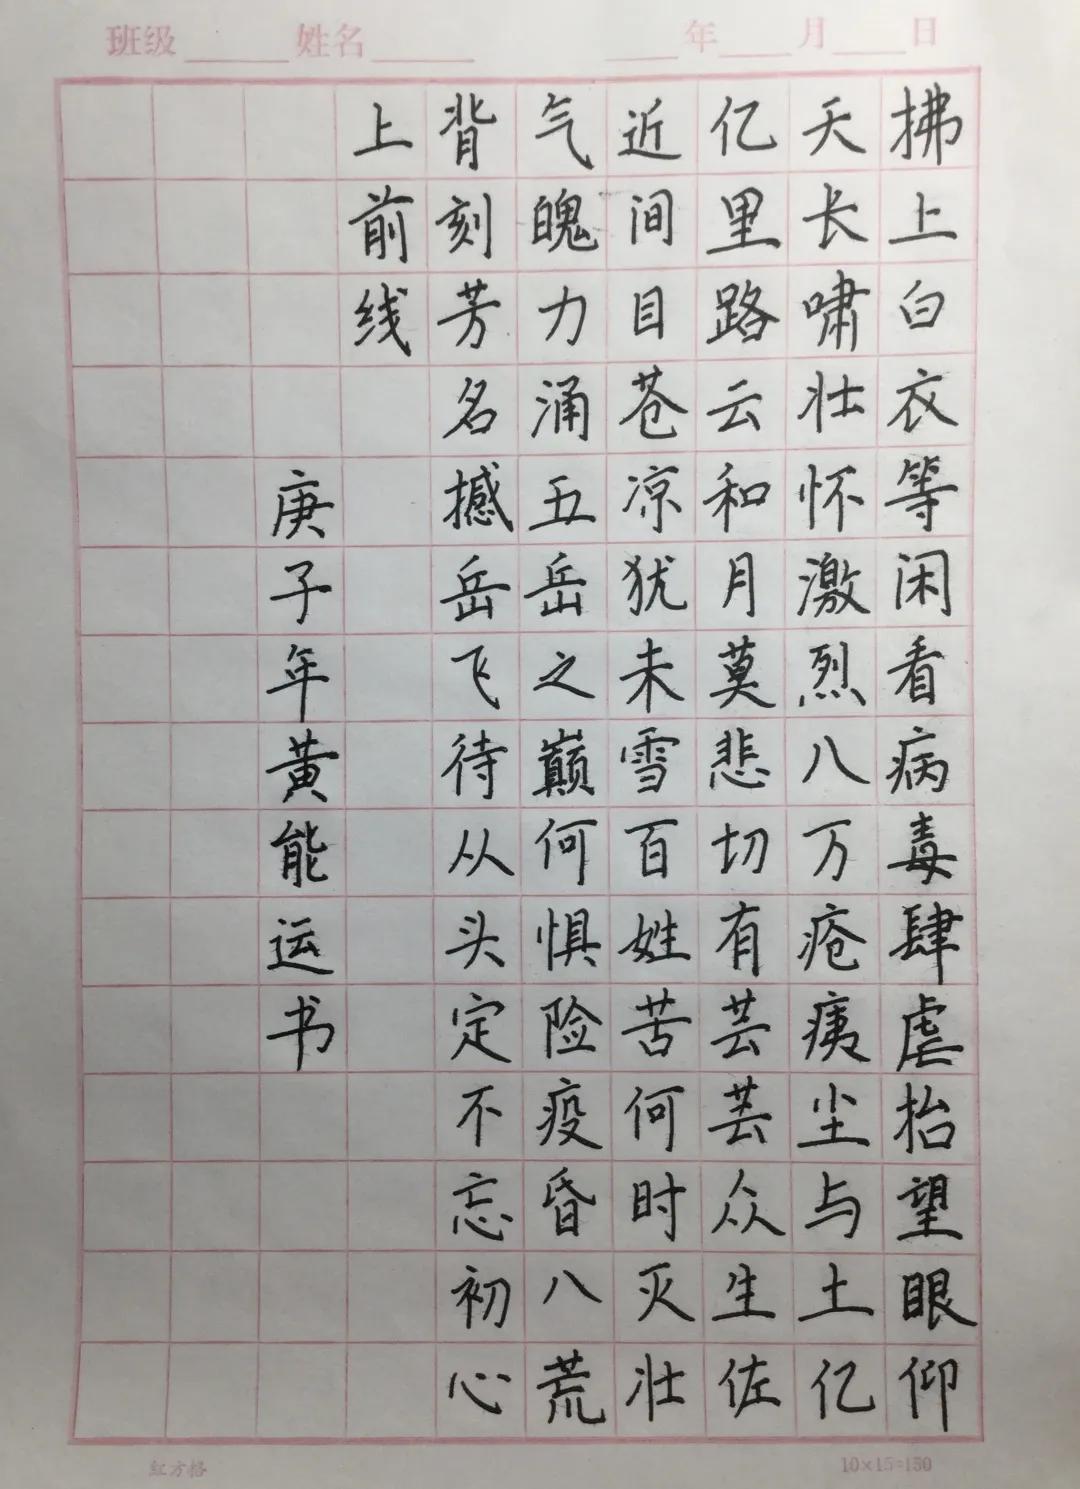 班级 姓名 年 月 日
拂上白衣等闲看病毒肆虐抬望眼仰
天长啸壮怀激烈八万疮痍尘与土亿
亿里路云和月莫悲切有芸芸众生佐
近间目苍凉犹未雪百姓苦何时灭壮
气魄力涌五岳之巅何惧险疫昏八荒
背刻芳名撼岳飞待从头定不忘初心
上前线
庚子年黄能运书
红方格 10×15=150